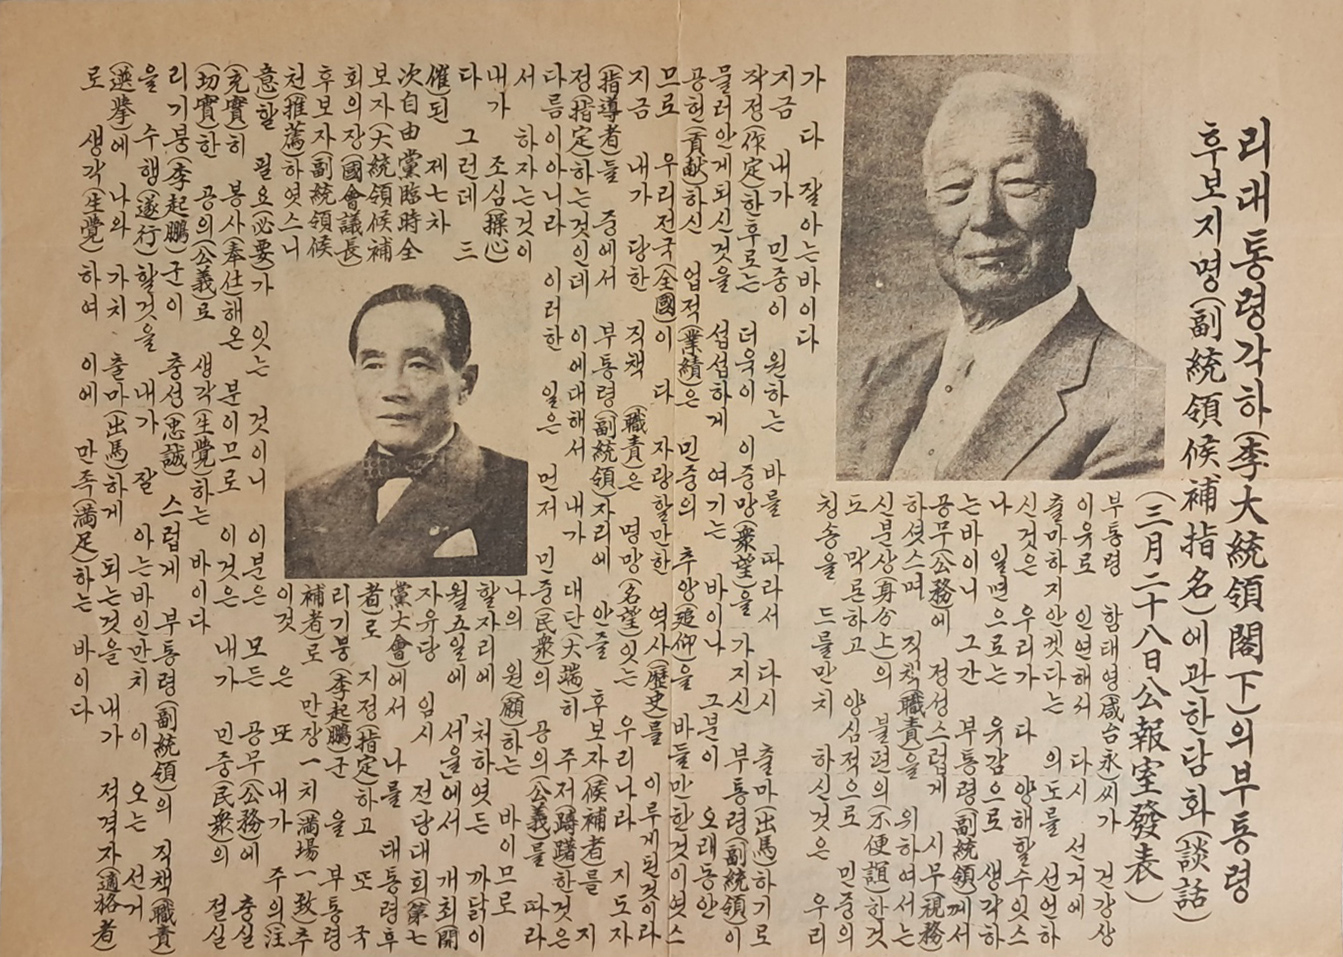 리대통령각하(李大統領閣下)의부통령
후보지명(副統領候補指名)에관한담화(談話)
(三月二十八日公報室發表)
부통령 함태영(咸台永)씨가 건강상
이유로 인연해서 다시 선거에
출마하지안겟다는 의도를 선언하
신것은 우리가 다 양해할수잇스
나 일면으로는 유감으로 생각하
는바이니 그간 부통령(副統領)께서
공무(公務)에 정성스럽게 시무(視務)
하셧스며 직책(職責)을 위하여서는
신분상(身分上)의 불편의(不便誼)한것
도 막론하고 양심적으로 민중의
칭송을 드를만치 하신것은 우리
가 다 잘아는바이다
지금 내가 민중이 원하는 바를 따라서 다시 출마(出馬)하기로
작정(作定)한후로는 더욱이 이중망(衆望)을 가지신 부통령(副統領)이
물러안게되신것을 섭섭하게 여기는 바이나 그분이 오래동안
공헌(貢献)하신 업적(業績)은 민중의 추앙(追仰)을 바들만한것이엿스
므로 우리전국(全國)이 다 자랑할만한 역사(歷史)를 이루게된것이라
지금 내가 당한 직책(職責)은 명망(名望)잇는 우리나라 지도자
(指導者)들 중에서 부통령(副統領)자리에 안즐 후보자(候補者)를 지
정(指定)하는것인데 이에대해서 내가 대단(大端)히 주저(躊躇)한것은
다름이아니라 이러한 일은 먼저 민중(民衆)의 공의(公義)를 따라
서 하자는것이 나의 원(願)하는 바이므로
내가 조심(操心) 할자리에 처하엿든 까닭이
다 그런데 三월五일에 「서울」에서 개최(開
催)된 제七차 자유당 임시 전당대회(第七
次自由黨臨時全黨大會)에서 나를 대통령후
보자(大統領候補者)로 지정(指定)하고 또 국
회의장(國會議長) 리기붕(李起鵬)군 을 부통령
후보자(副統領候補者)로 만장一치(満場一致)추
천(推薦)하엿스니 이것 은 또 내가 주의(注
意)할 필요(必要)가 잇는 것이니 이분은 모든 공무(公務)에 충실
(充實)히 봉사(奉仕)해온 분이므로 이것은 내가 민중(民衆)의 절실
(切實)한 공의(公義)로 생각(生覺)하는 바이다
리기붕(李起鵬)군이 충성(忠誠) 스럽게 부통령(副統領)의 직책(職責)
을 수행(遂行)할것을 내가 잘 아는바인만치 이 오는 선거
(選擧)에 나와 가치 출마(出馬)하게 되는것을 내가 적격자(適格者)
로 생각(生覺)하여 이에 만족(満足)하는 바이다